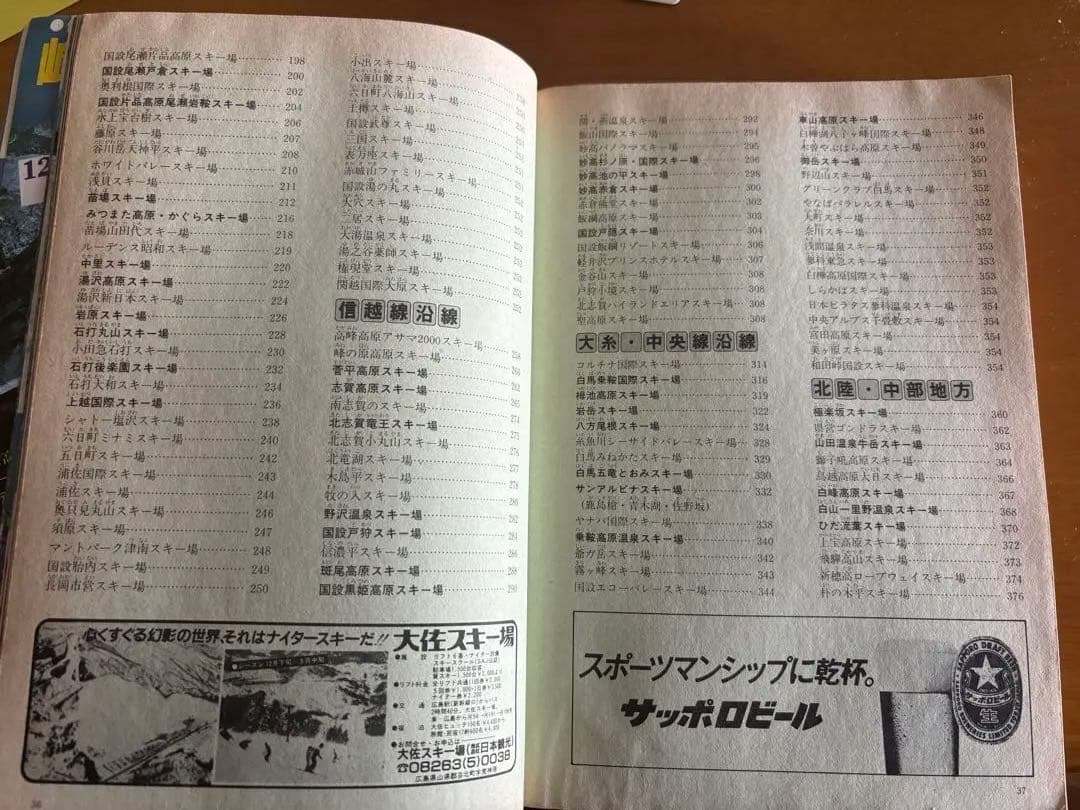 12
国設尾瀬片品高原スキー場 198
国設尾瀬戸倉スキー場 200
奥利根国際スキー場 202
国設片品高原尾瀬岩鞍スキー場 204
水上宝台樹スキー場 206
藤原スキー場 207
谷川岳天神平スキー場 208
ホワイトバレースキー場 210
浅貝スキー場 211
苗場スキー場 212
みつまた高原・かぐらスキー場 216
苗場山田代スキー場 218
ルーデンス昭和スキー場 219
中里スキー場 220
湯沢高原スキー場 222
湯沢新日本スキー場 224
岩原スキー場 226
石打丸山スキー場 228
小田急石打スキー場 230
石打後楽園スキー場 232
石打大和スキー場 234
上越国際スキー場 236
シャトー塩沢スキー場 238
六日町ミナミスキー場 240
五日町スキー場 242
浦佐国際スキー場 243
浦佐スキー場 244
奥只見丸山スキー場 246
須原スキー場 247
マントパーク津南スキー場 248
国設胎内スキー場 249
長岡市営スキー場 250
小出スキー場
八海山麓スキー場
六日町八海山スキー場
土樽スキー場
国設武尊スキー場
三国スキー場
表万座スキー場
赤城山ファミリースキー場
国設湯の丸スキー場
大穴スキー場
二居スキー場 252
大湯温泉スキー場 252
湯之谷薬師スキー場 252
権現堂スキー場 252
関越国際大原スキー場 252
信越線沿線
高峰高原アサマ2000スキー場 258
峰の原高原スキー場
菅平高原スキー場
志賀高原スキー場
南志賀のスキー場
北志賀竜王スキー場
北志賀小丸山スキー場
北竜湖スキー場 277
木島平スキー場 278
牧の入スキー場
野沢温泉スキー場 282
国設戸狩スキー場
信濃平スキー場 286
斑尾高原スキー場 288
国設黒姫高原スキー場
心くすぐる幻影の世界、それはナイタースキーだ!! 大佐スキー場
●シーズン12月下旬〜3月中旬
●施設 リフト6基・ナイター設備
●リフト料金
●交通
●宿泊
●お問合せ・お申込は
大佐スキー場(株式会社日本観光)
☎08263(5)0038
36
関・燕温泉スキー場 292
飯山国際スキー場 294
妙高パノラマスキー場 295
妙高杉ノ原・国際スキー場 296
妙高池の平スキー場 298
妙高赤倉スキー場 300
赤倉観堂スキー場 302
飯綱高原スキー場 303
国設戸隠スキー場 304
国設飯綱リゾートスキー場 306
軽井沢プリンスホテルスキー場 307
金谷山スキー場 308
戸狩小境スキー場 308
北志賀ハイランドエリアスキー場 308
聖高原スキー場 308
大糸・中央線沿線
コルチナ国際スキー場 314
白馬乗鞍国際スキー場 316
栂池高原スキー場 319
岩岳スキー場 322
八方尾根スキー場 324
糸魚川シーサイドバレースキー場 328
白馬みねかたスキー場 329
白馬五竜とおみスキー場 330
サンアルピナスキー場 332
(鹿島槍・青木湖・佐野坂)
ヤナバ国際スキー場 338
乗鞍高原温泉スキー場 340
爺ヶ岳スキー場 342
霧ヶ峰スキー場 343
国設エコーバレースキー場 344
車山高原スキー場 346
白樺湖八子ヶ峰国際スキー場 348
木曽やぶはら高原スキー場 349
御岳スキー場 350
野辺山スキー場 351
グリーンクラブ白馬スキー場 352
やなばパラレルスキー場 352
大町スキー場 352
奈川スキー場 352
浅間温泉スキー場 353
蓼科東急スキー場 353
白樺高原国際スキー場 353
しらかばスキー場 353
日本ピラタス蓼科温泉スキー場 354
中央アルプス千畳敷スキー場 354
宮田高原スキー場 354
美ヶ原スキー場 354
和田峠国設スキー場 354
北陸・中部地方
極楽坂スキー場 360
県営ゴンドラスキー場 362
山田温泉牛岳スキー場 363
獅子吼高原スキー場 364
鳥越高原大日スキー場 366
白峰高原スキー場 367
白山一里野温泉スキー場 368
ひだ流葉スキー場 370
上宝高原スキー場 372
飛騨高山スキー場 373
新穂高ロープウェイスキー場 374
朴の木平スキー場 376
スポーツマンシップに乾杯。
サッポロビール
SAPPORO DRAFT BEER
サッポロビール
生
37